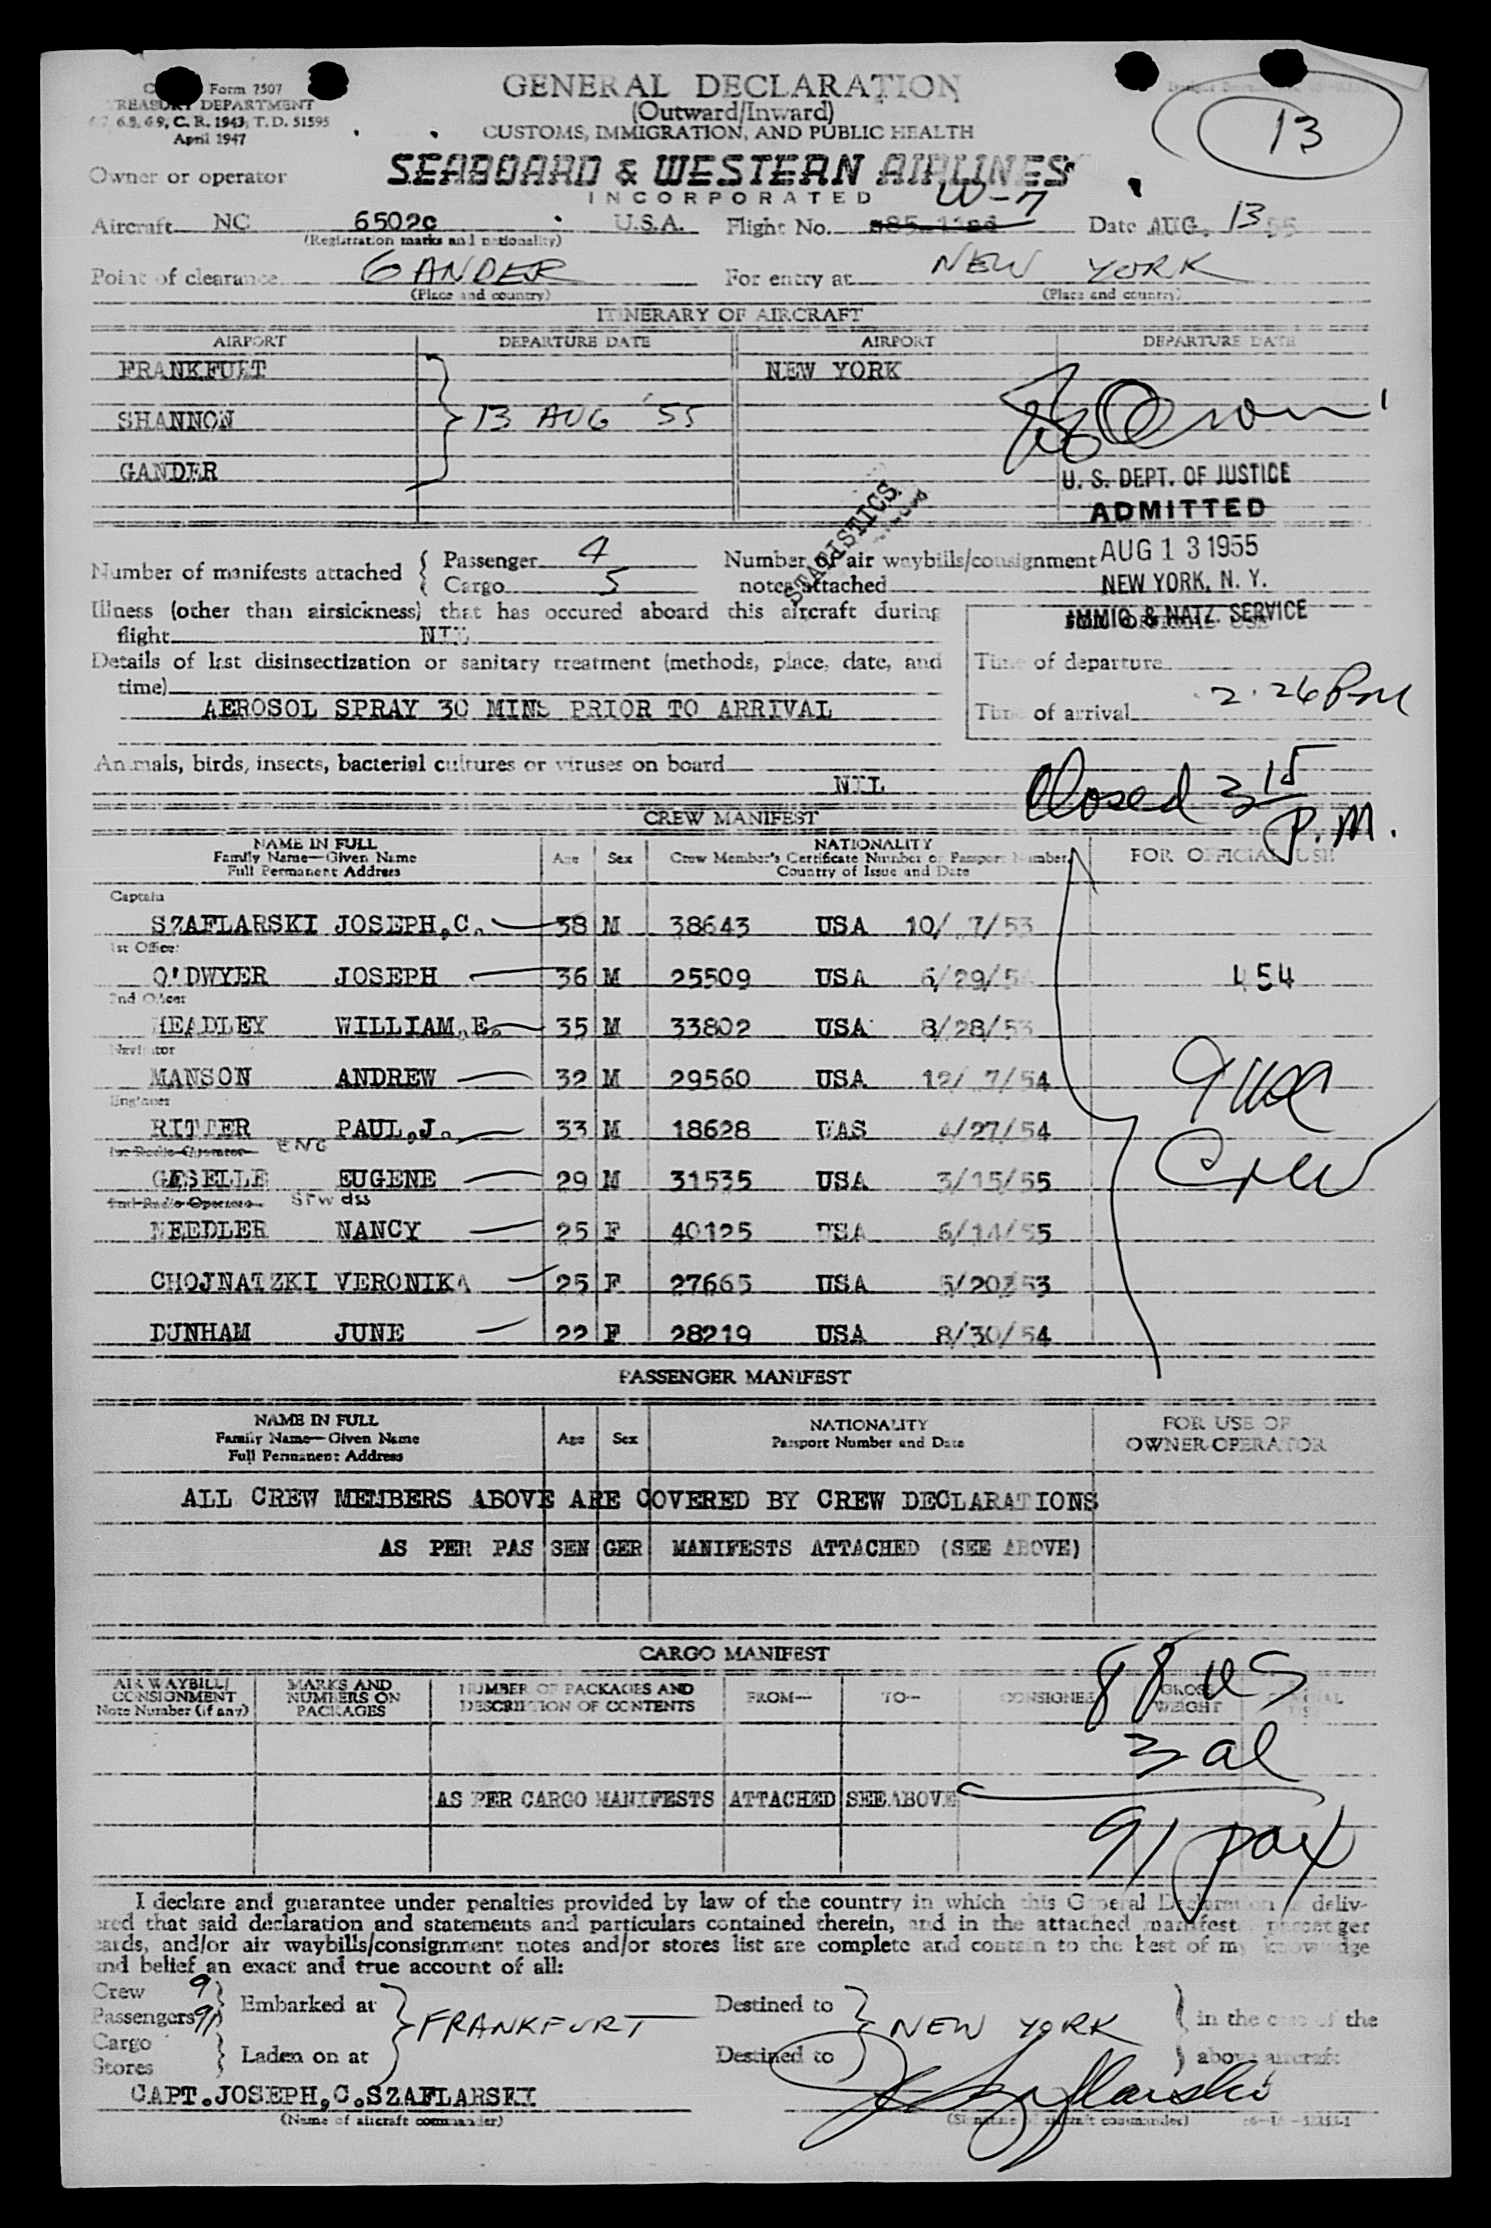 Form 7507
TREASURY DEPARTMENT
6.8, 6.9, C. R. 1943, T. D. 51595
April 1947
13
GENERAL DECLARATION
(Outward/Inward)
CUSTOMS, IMMIGRATION, AND PUBLIC HEALTH
Owner or operator SEABOARD & WESTERN AIRLINES
INCORPORATED
W-7
Aircraft NC 6502C U.S.A. Flight No. Date AUG. 13 55
(Registration marks and nationality)
Point of clearance GANDER For entry at NEW YORK
(Place and country) (Place and country)
ITINERARY OF AIRCRAFT
AIRPORT DEPARTURE DATE AIRPORT DEPARTURE DATE
FRANKFURT NEW YORK
SHANNON 13 AUG '55
GANDER
U. S. DEPT. OF JUSTICE
ADMITTED
AUG 13 1955
NEW YORK, N. Y.
IMMIG. & NATZ. SERVICE
STATISTICS
Number of manifests attached { Passenger 4 Number of air waybills/consignment
Cargo 5 notes attached
Illness (other than airsickness) that has occured aboard this aircraft during
flight NIL
Details of last disinsectization or sanitary treatment (methods, place, date, and
time)
AEROSOL SPRAY 30 MINS PRIOR TO ARRIVAL
Time of departure
Time of arrival 2.26 PM
Animals, birds, insects, bacterial cultures or viruses on board
NIL
Closed 3 15 P.M.
CREW MANIFEST
NAME IN FULL
Family Name—Given Name
Full Permanent Address
Age Sex
NATIONALITY
Crew Member's Certificate Number or Passport Number,
Country of Issue and Date
FOR OFFICIAL USE
Captain
SZAFLARSKI JOSEPH,C. 38 M 38643 USA 10/ 7/53
1st Officer
O'DWYER JOSEPH 36 M 25509 USA 6/29/5
454
2nd Officer
HEADLEY WILLIAM.E. 35 M 33802 USA 8/28/53
Navigator
MANSON ANDREW 32 M 29560 USA 12/ 7/54
Engineer
RITTER PAUL,J. 33 M 18628 UAS 4/27/54
1st Radio Operator ENG
GESELLE EUGENE 29 M 31535 USA 3/15/55
2nd Radio Operator STWdss
NEEDLER NANCY 25 F 40125 USA 6/14/55
CHOJNATZKI VERONIKA 25 F 27665 USA 5/20/53
DUNHAM JUNE 22 F 28219 USA 8/30/54
9 USC
Crew
PASSENGER MANIFEST
NAME IN FULL
Family Name—Given Name
Full Permanent Address
Age Sex
NATIONALITY
Passport Number and Date
FOR USE OF
OWNER-OPERATOR
ALL CREW MEMBERS ABOVE ARE COVERED BY CREW DECLARATIONS
AS PER PASSENGER MANIFESTS ATTACHED (SEE ABOVE)
CARGO MANIFEST
AIR WAYBILL/
CONSIGNMENT
Note Number (if any)
MARKS AND
NUMBERS ON
PACKAGES
NUMBER OF PACKAGES AND
DESCRIPTION OF CONTENTS
FROM— TO— CONSIGNEE
GROSS
WEIGHT
88 US
3 al
AS PER CARGO MANIFESTS ATTACHED SEE ABOVE
91 pax
I declare and guarantee under penalties provided by law of the country in which this General Declaration is deliv-
ered that said declaration and statements and particulars contained therein, and in the attached manifest, passenger
cards, and/or air waybills/consignment notes and/or stores list are complete and contain to the best of my knowledge
and belief an exact and true account of all:
Crew 9
Passengers 91 } Embarked at FRANKFURT Destined to NEW YORK in the case of the
Cargo
Stores } Laden on at Destined to above aircraft
CAPT.JOSEPH,C.SZAFLARSKI J C Szaflarski
(Name of aircraft commander) (Signature of aircraft commander)